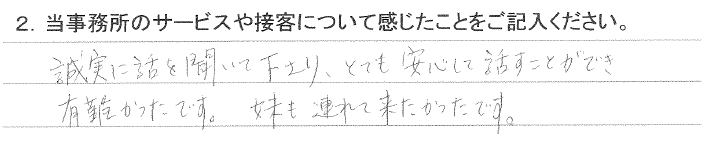 2. 当事務所のサービスや接客について感じたことをご記入ください。
誠実に話を聞いて下さり、とても安心して話すことができ
有難かったです。 妹も連れて来たかったです。